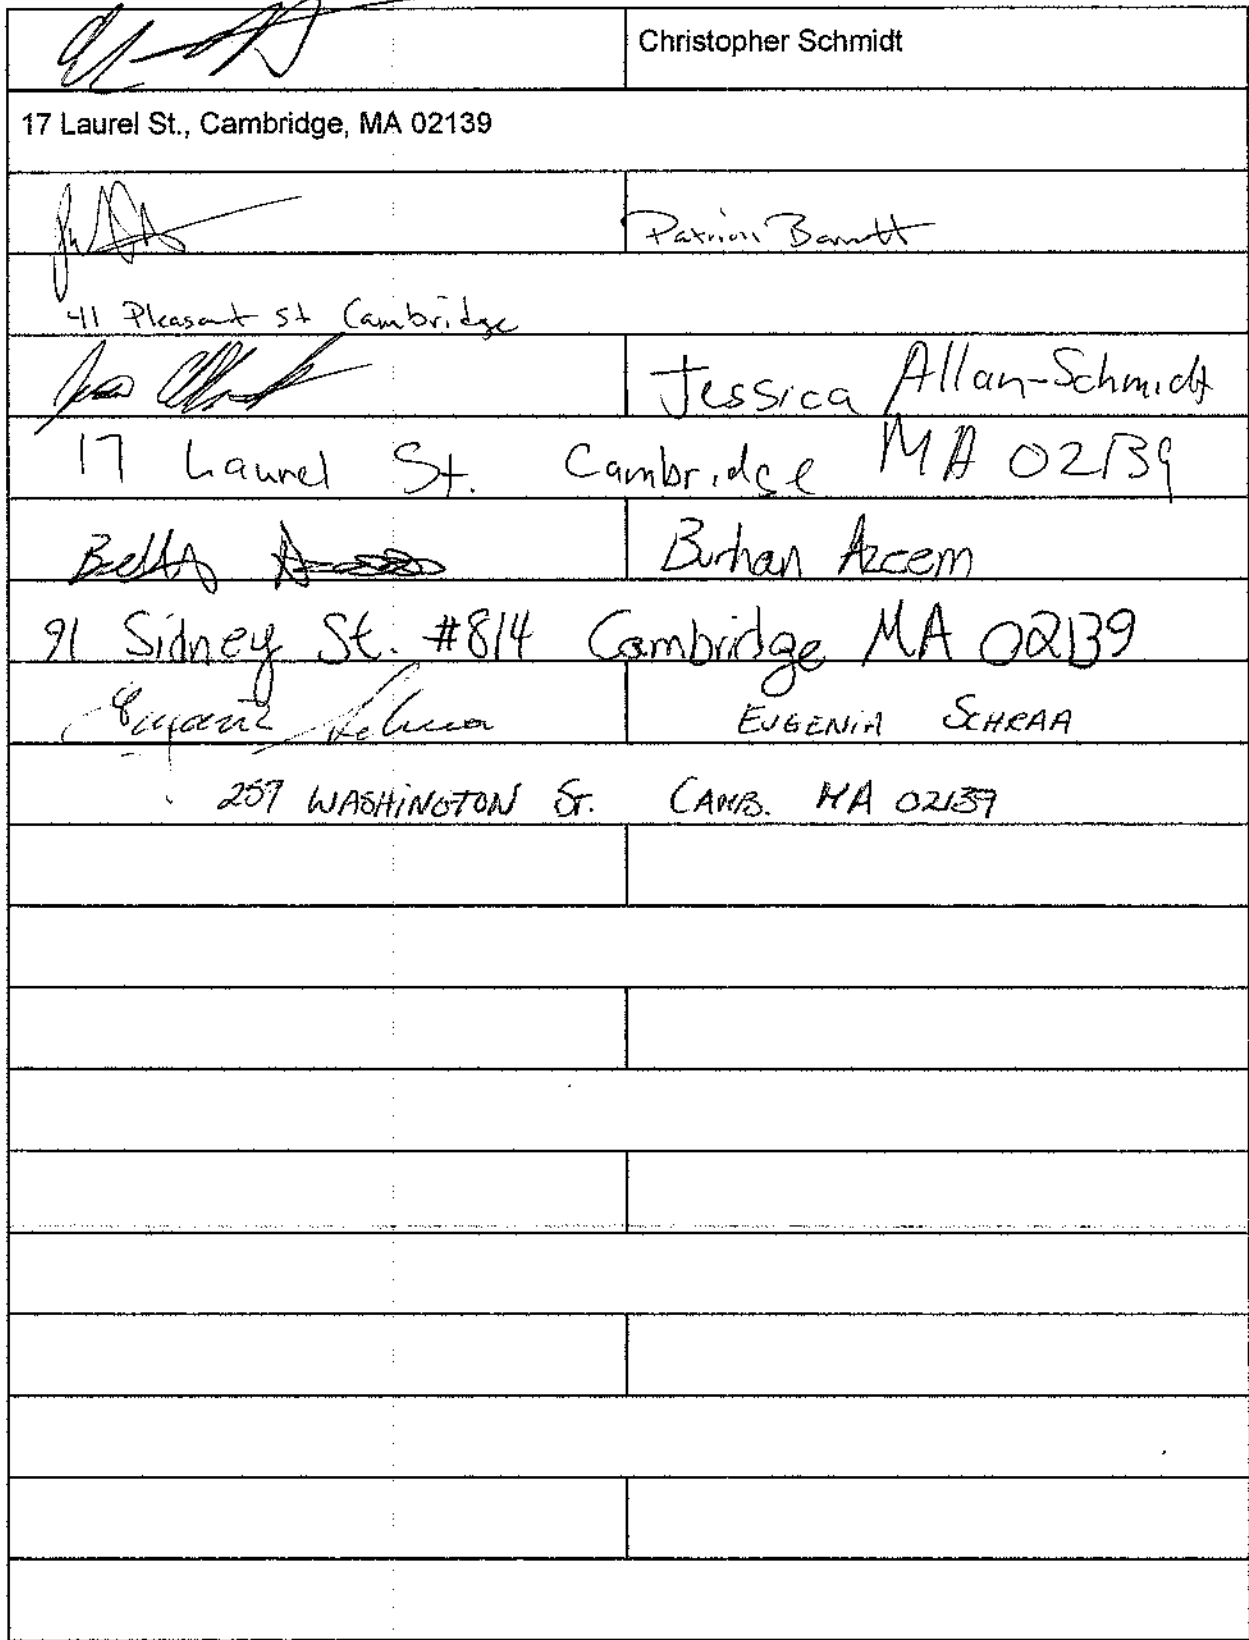 Christopher Schmidt
17 Laurel St., Cambridge, MA 02139
Barrett
41 Pleasant St Cambridge
Jessica Allan-Schmidt
17 Laurel St. Cambridge MA 02139
Burhan Azeem
91 Sidney St. #814 Cambridge MA 02139
EUGENIA SCHRAA
257 WASHINGTON ST. CAMB. MA 02139